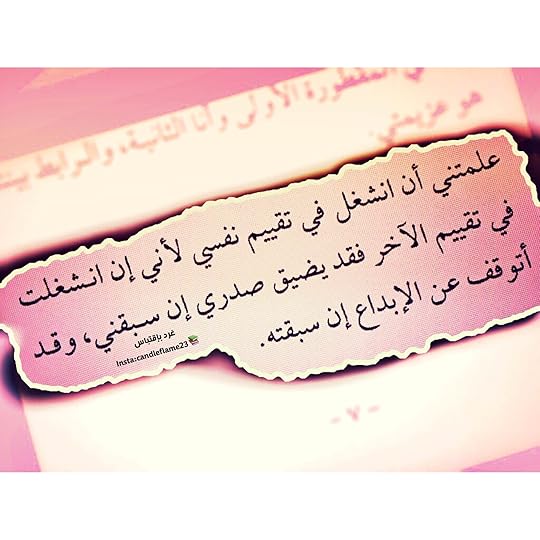 في المقطورة الأولى وأنا الثانية، والرابط بيننا
هو عزيمتي.
علمتني أن انشغل في تقييم نفسي لأني إن انشغلت
في تقييم الآخر فقد يضيق صدري إن سبقني، وقد
أتوقف عن الإبداع إن سبقته.
غرد بإقتباس
Insta:candleflame23
- ٧ -